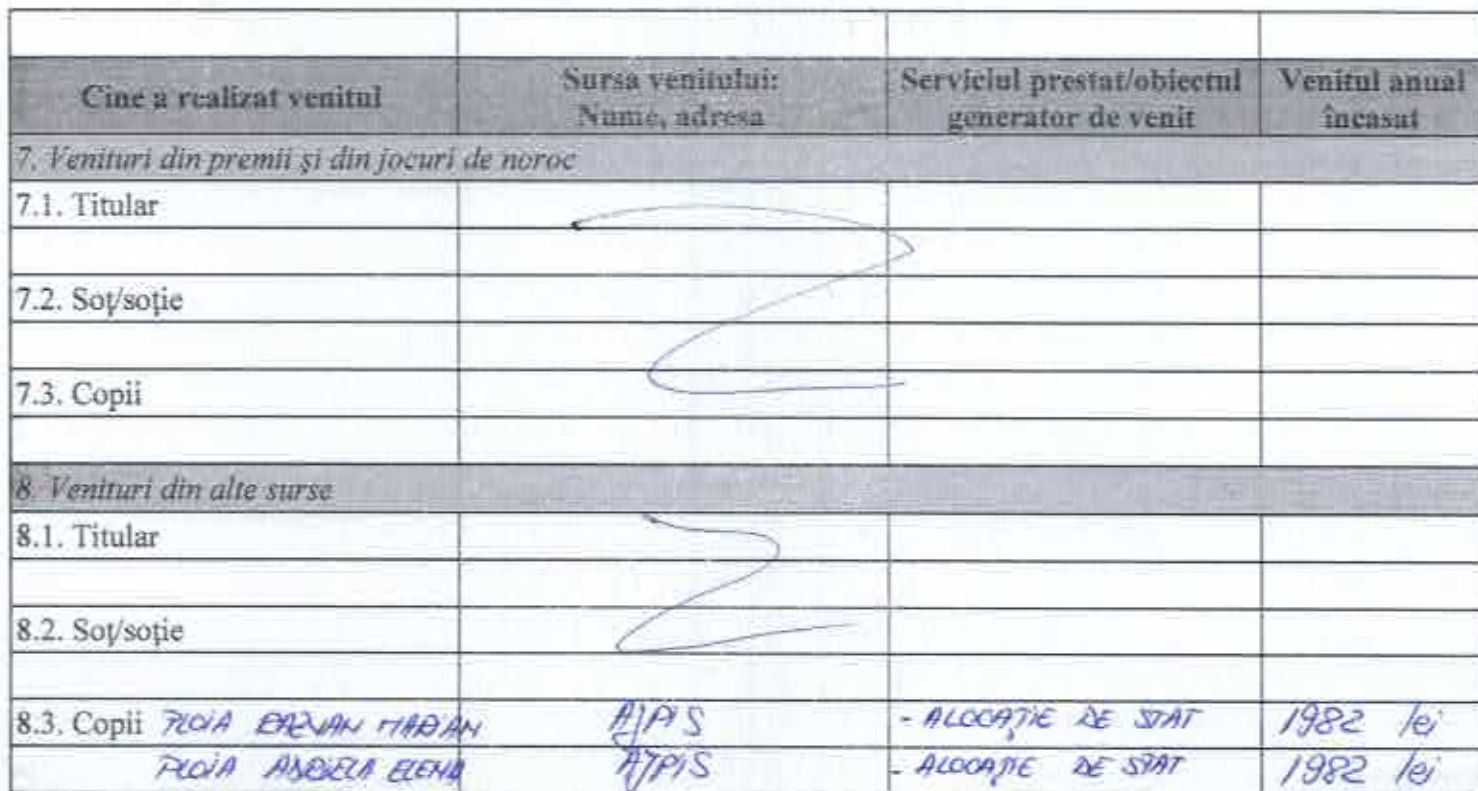 Cine a realizat venitul Sursa venitului: Nume, adresa Serviciul prestat/obiectul generator de venit Venitul anual încasat
7. Venituri din premii și din jocuri de noroc
7.1. Titular
7.2. Soț/soție
7.3. Copii
8. Venituri din alte surse
8.1. Titular
8.2. Soț/soție
8.3. Copii PLOIA MARIAN AJPIS - ALOCAȚIE DE STAT 1982 lei
PLOIA ELENA AJPIS - ALOCAȚIE DE STAT 1982 lei